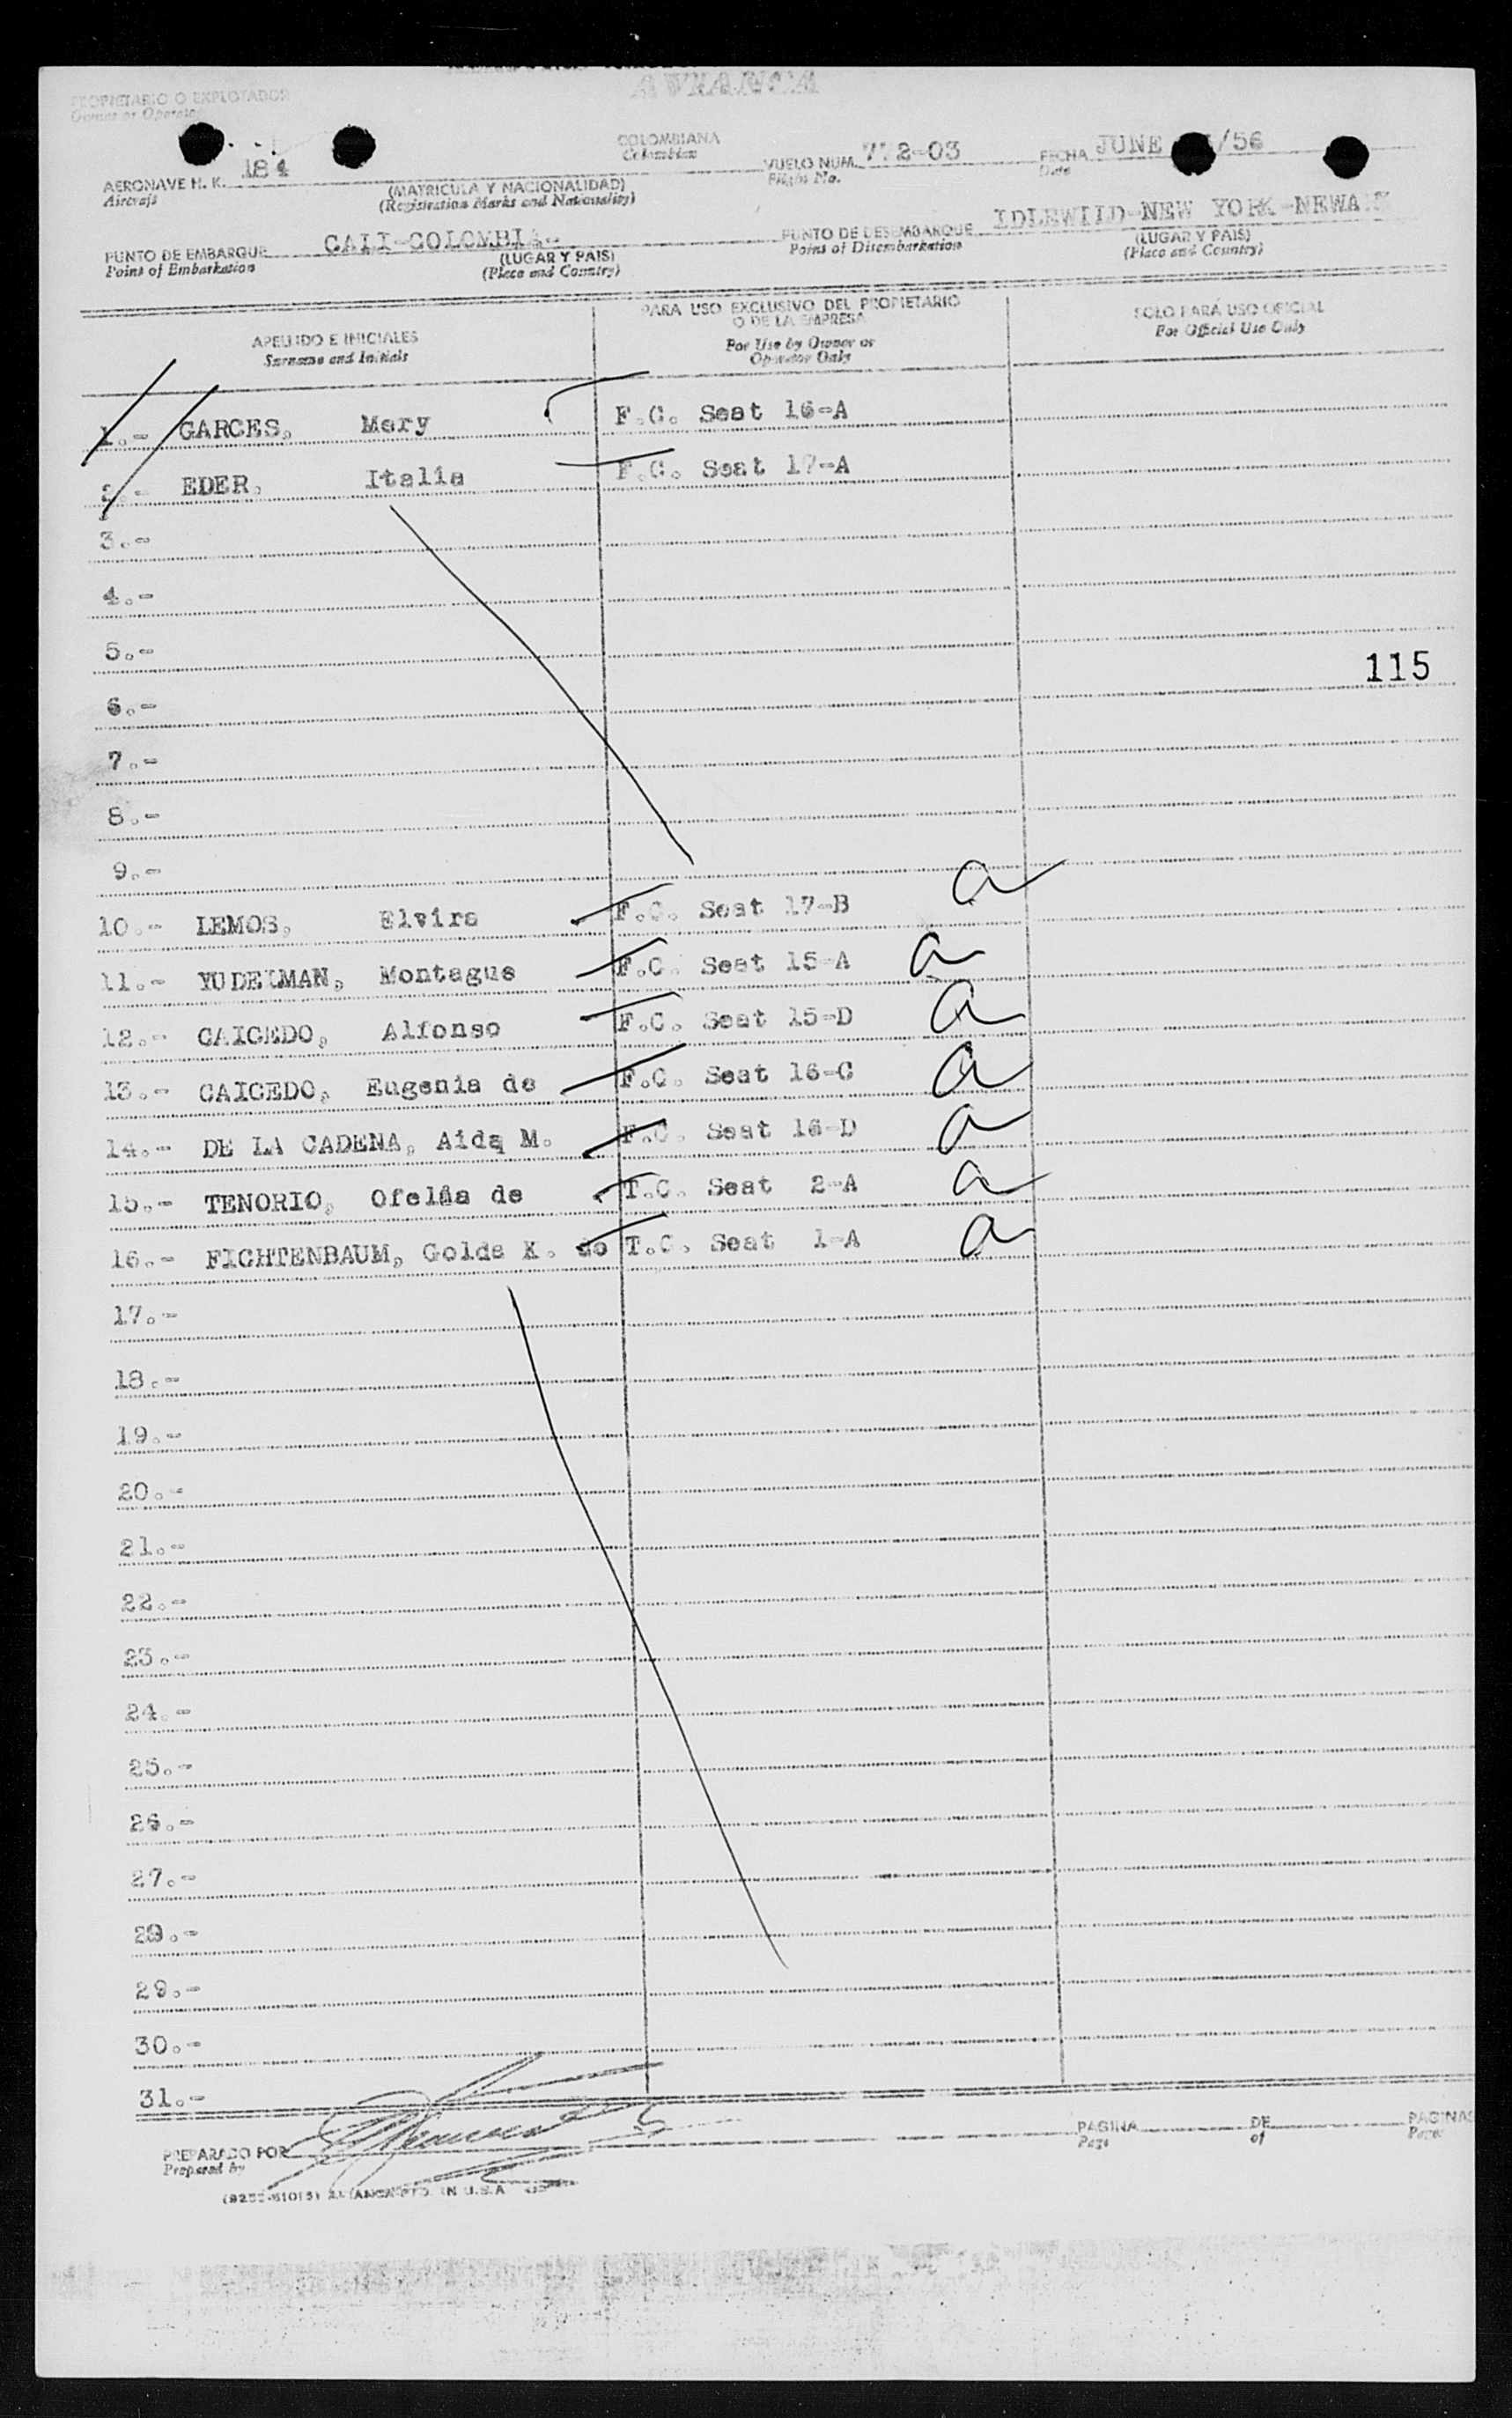 AVIANCA
PROPIETARIO O EXPLOTADOR
Owner or Operator
COLOMBIANA
Colombian
AERONAVE H. K. 184
Aircraft
(MATRICULA Y NACIONALIDAD)
(Registration Marks and Nationality)
VUELO NUM. 772-03
Flight No.
FECHA JUNE /56
Date
PUNTO DE EMBARQUE CALI-COLOMBIA-
Point of Embarkation
(LUGAR Y PAIS)
(Place and Country)
PUNTO DE DESEMBARQUE IDLEWILD-NEW YORK-
Point of Disembarkation
(LUGAR Y PAIS)
(Place and Country)
APELLIDO E INICIALES
Surname and Initials
PARA USO EXCLUSIVO DEL PROPIETARIO
O DE LA EMPRESA
For Use by Owner or
Operator Only
SOLO PARA USO OFICIAL
For Official Use Only
1.- GARCES, Mary F.C. Seat 16-A
2.- EDER, Italia F.C. Seat 17-A
3.-
4.-
5.-
115
6.-
7.-
8.-
9.-
10.- LEMOS, Elvira F.C. Seat 17-B a
11.- YUDELMAN, Montague F.C. Seat 15-A a
12.- CAICEDO, Alfonso F.C. Seat 15-D a
13.- CAICEDO, Eugenia de F.C. Seat 16-C a
14.- DE LA CADENA, Aida M. F.C. Seat 16-D a
15.- TENORIO, Ofelia de T.C. Seat 2-A a
16.- FICHTENBAUM, Golda K. de T.C. Seat 1-A a
17.-
18.-
19.-
20.-
21.-
22.-
23.-
24.-
25.-
26.-
27.-
28.-
29.-
30.-
31.-
PREPARADO POR
Prepared by
PAGINA DE PAGINAS
Page of Pages